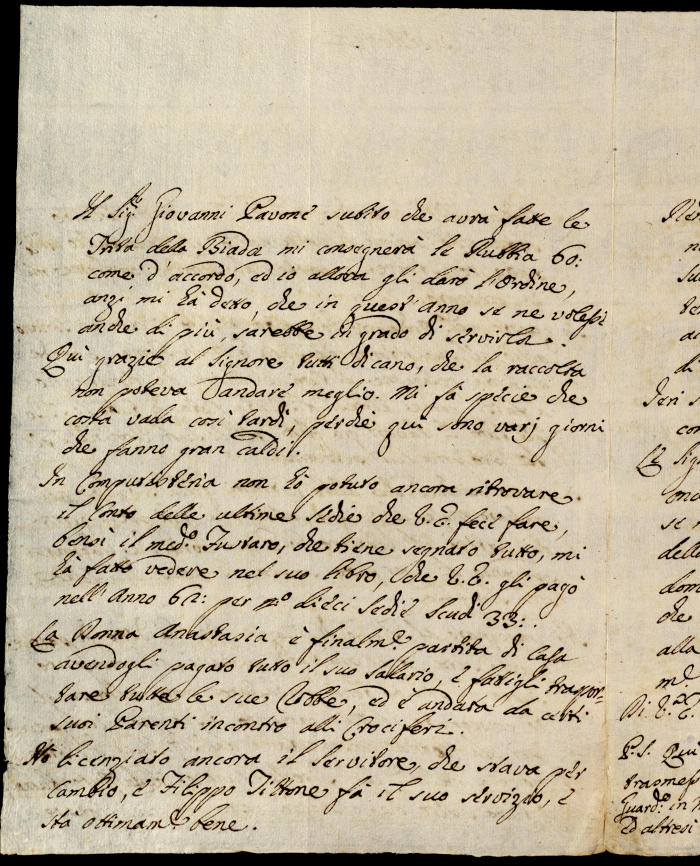 Il Sig.re Giovanni Pavone subito che avrà fatte le
Trita della Biada mi consegnerà le Rubbia 60:
come d'accordo, ed io allora gli darò l'Ordine,
anzi mi hà detto, che in quest'anno se ne volessi
anche di più, sarebbe in grado di servirla.
Quì grazie al Signore tutti dicano, che la raccolta
non poteva andare meglio. Mi fà specie che
costà vada così tardi, perchè quì sono varj giorni
che fanno gran caldi.
In Computisteria non hò potuto ancora ritrovare
il Conto delle ultime Sedie che V.E. fece fare,
bensì il med.o Fustaro, che tiene segnato tutto, mi
hà fatto vedere nel suo libro, che V.E. gli pagò
nell'Anno 62: per n.o dieci Sedie Scudi 33:
La Donna Anastasia è finalm.e partita di Casa
avendogli pagato tutto il suo Salario, e fattigli traspor-
tare tutte le sue Robbe, ed è andata da certi
suoi Parenti incontro alli Crociferi.
Hò licenziato ancora il Servitore, che stava per
Cambio, e Filippo Tittone fà il suo servizio, e
stà ottimam.e bene.
Ieri
Il Sig
se
della
che
alla
Di V.E.
P.S. Quì
trasmess
Guard.a in
ed altresì